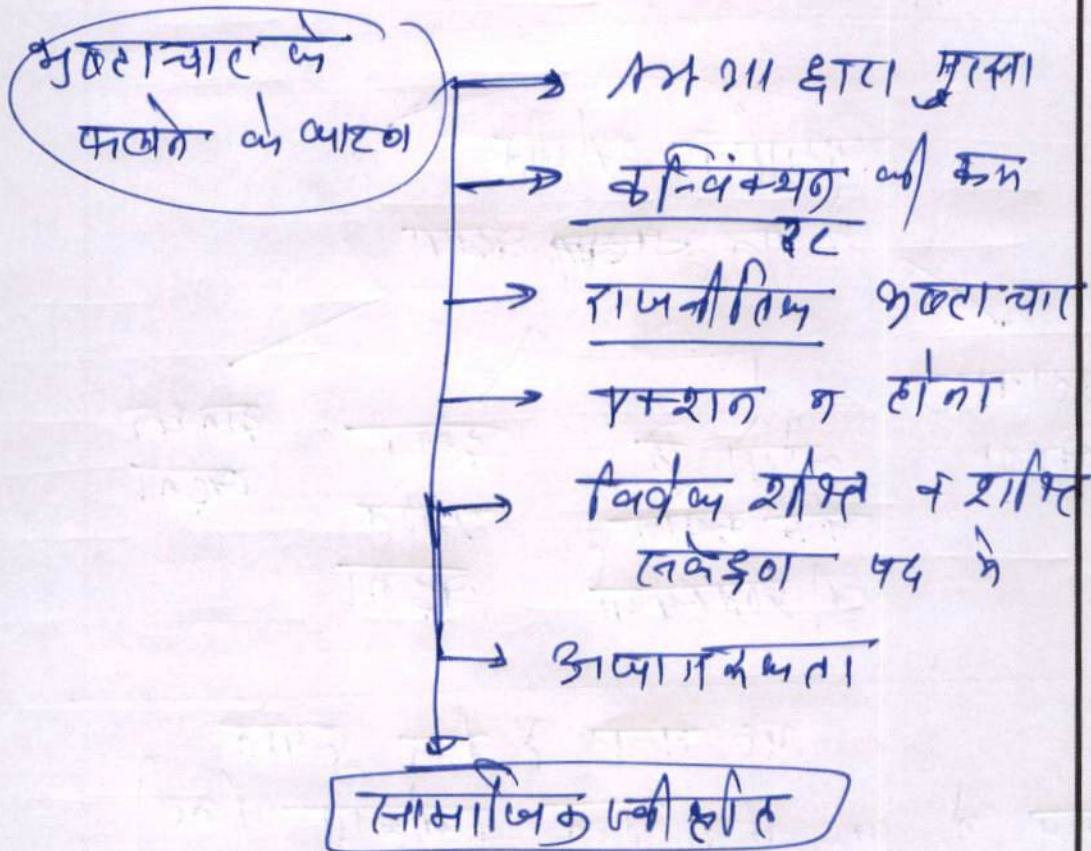 भ्रष्टाचार के
फलने के कारण
द्वारा सुरक्षा
कन्विक्शन की कम
दर
राजनीतिक भ्रष्टाचार
एक्शन न होना
विवेक शक्ति व शक्ति
पद में
अजागरूकता
सामाजिक स्वीकृति